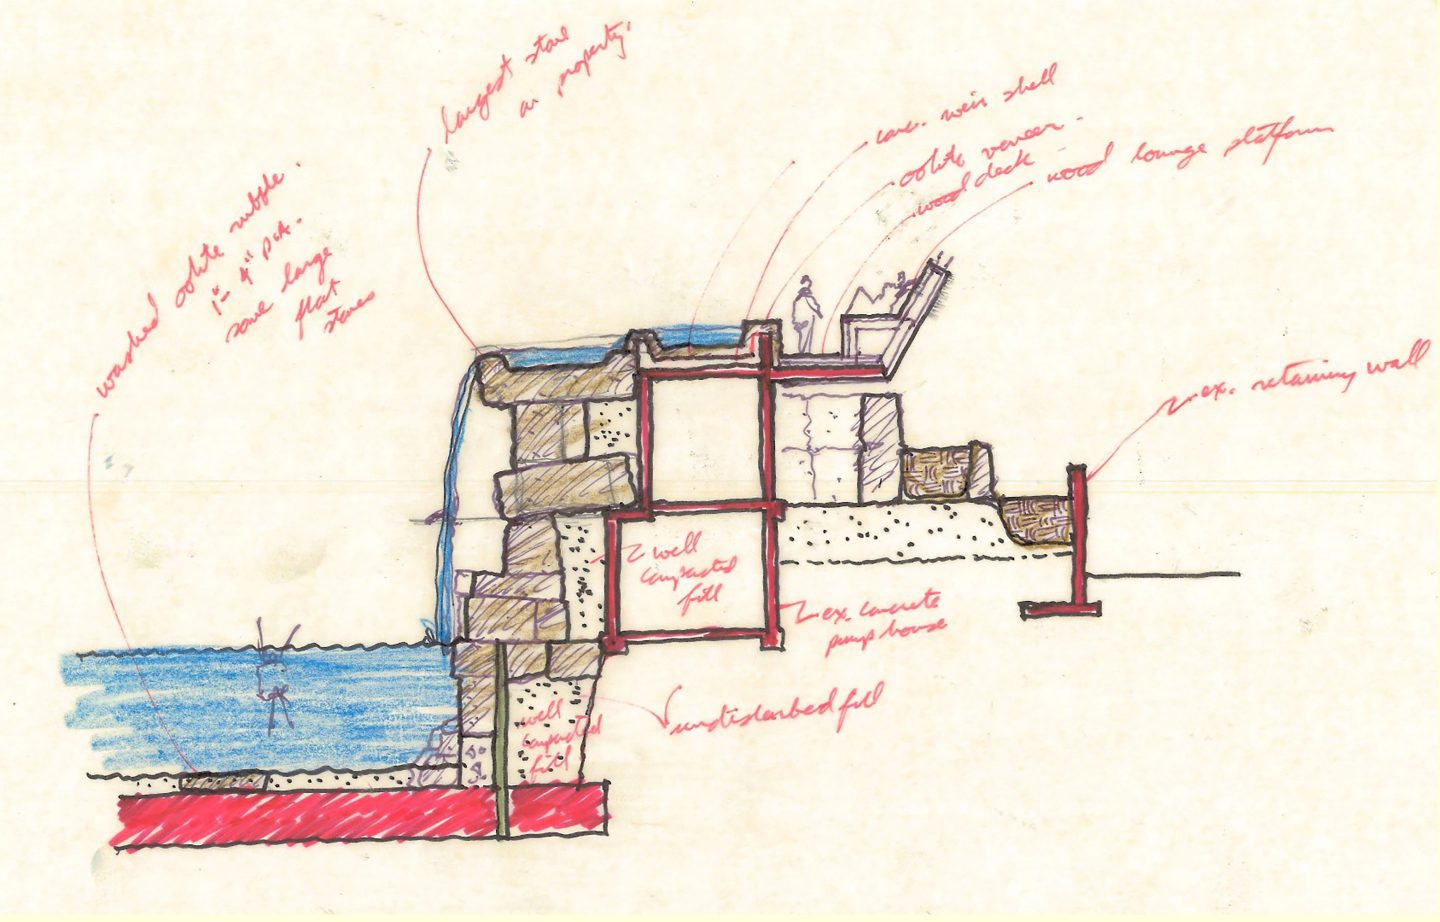 largest stone
on property.
conc. weir shell
oolite veneer.
wood deck
wood lounge platform
washed oolite rubble.
1"- 4" DIA.
some large
flat
stones
ex. retaining wall
well
compacted
fill
ex. concrete
pump house
undisturbed fill
well
compacted
fill